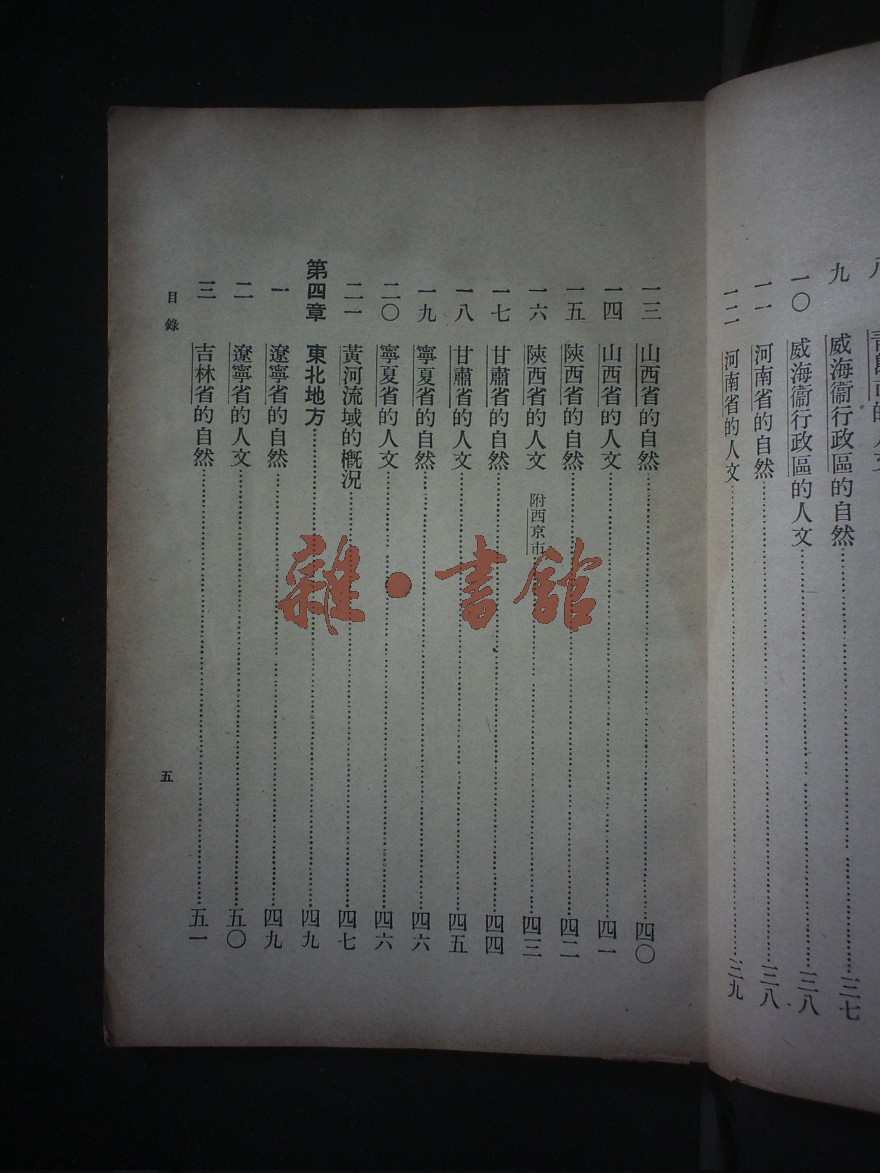 八
九 威海衞行政區的自然……三七
一〇 威海衞行政區的人文……三八
一一 河南省的自然……三八
一二 河南省的人文……三九
一三 山西省的自然……四〇
一四 山西省的人文……四一
一五 陝西省的自然……四二
一六 陝西省的人文 附西京市……四三
一七 甘肅省的自然……四四
一八 甘肅省的人文……四五
一九 寧夏省的自然……四六
二〇 寧夏省的人文……四六
二一 黃河流域的概況……四七
第四章 東北地方……四九
一 遼寧省的自然……四九
二 遼寧省的人文……五〇
三 吉林省的自然……五一
目錄
五
雜·書館